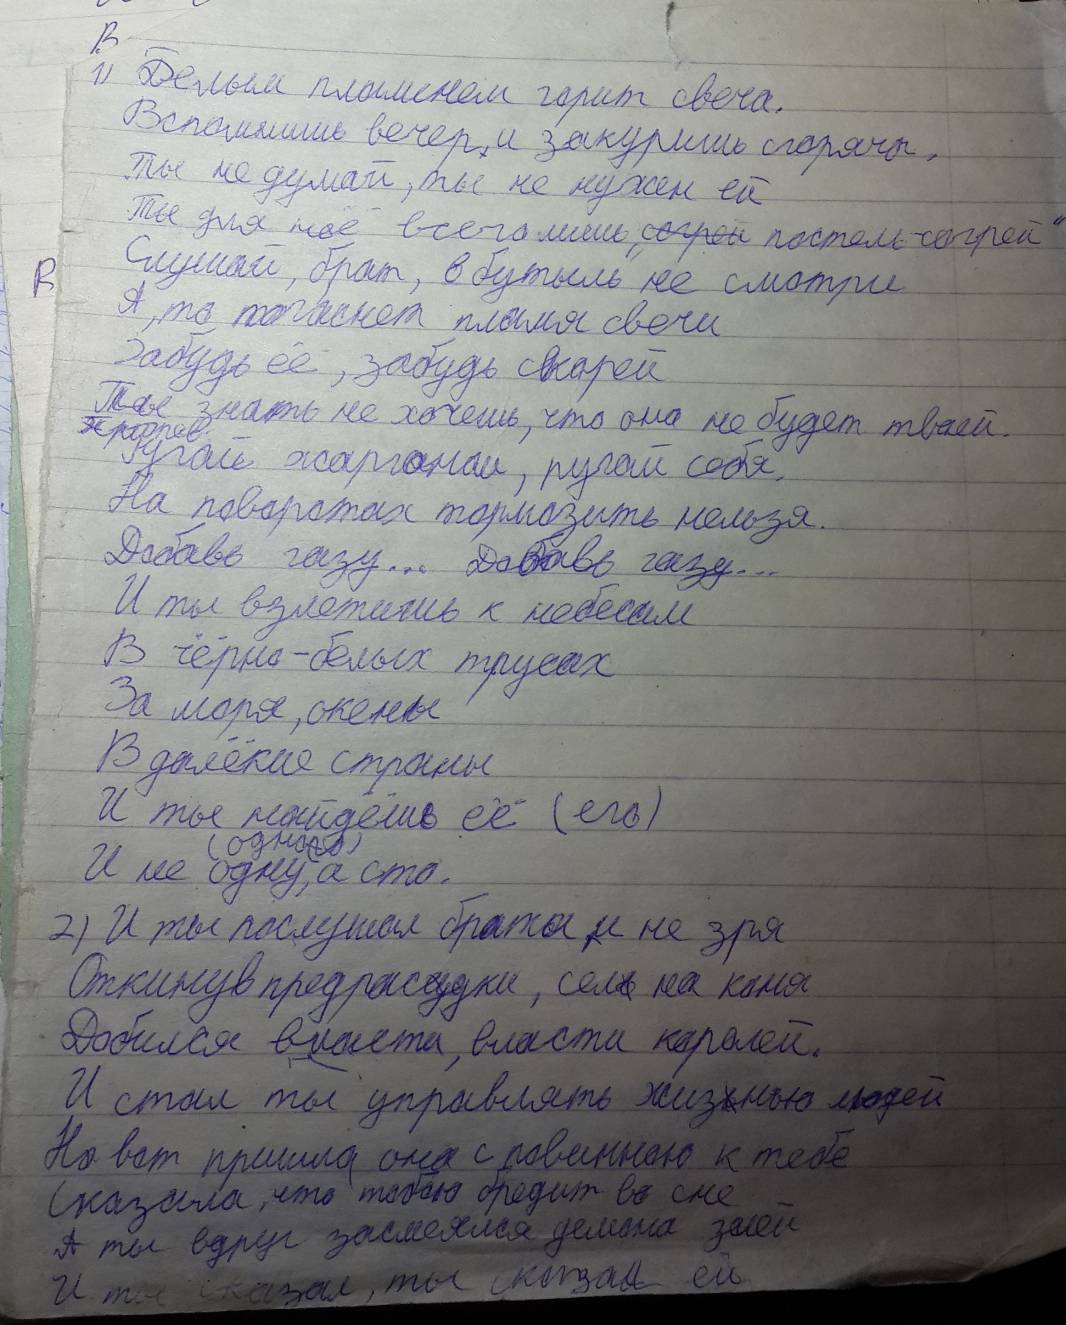 В
1) Белым пламенем горит свеча.
Вспомнишь вечер, и закуришь сгоряча.
Ты не думай, ты не нужен ей
Ты для неё всего лишь „согрей постель-согрей"
Слушай, брат, в бутыль не смотри
В
А, то погаснет пламя свечи
Забудь её, забудь скорей
Ты знать не хочешь, что она не будет твоей.
Ругай жаргоном, ругай себя.
На поворотах тормозить нельзя.
Добавь газу... Добавь газу...
И ты взлетишь к небесам
В чёрно-белых трусах
За моря, окены
В далёкие страны
И ты найдёшь её (его)
(одного)
И не одну, а сто.
2) И ты послушал брата и не зря
Откинув предрасудки, сел на коня
Добился власти, власти королей.
И стал ты управлять жизнью людей
Но вот пришла она с повинною к тебе
Сказала, что тобою бредит во сне
А ты вдруг засмеялся демона злей
И ты сказал, ты сказал ей